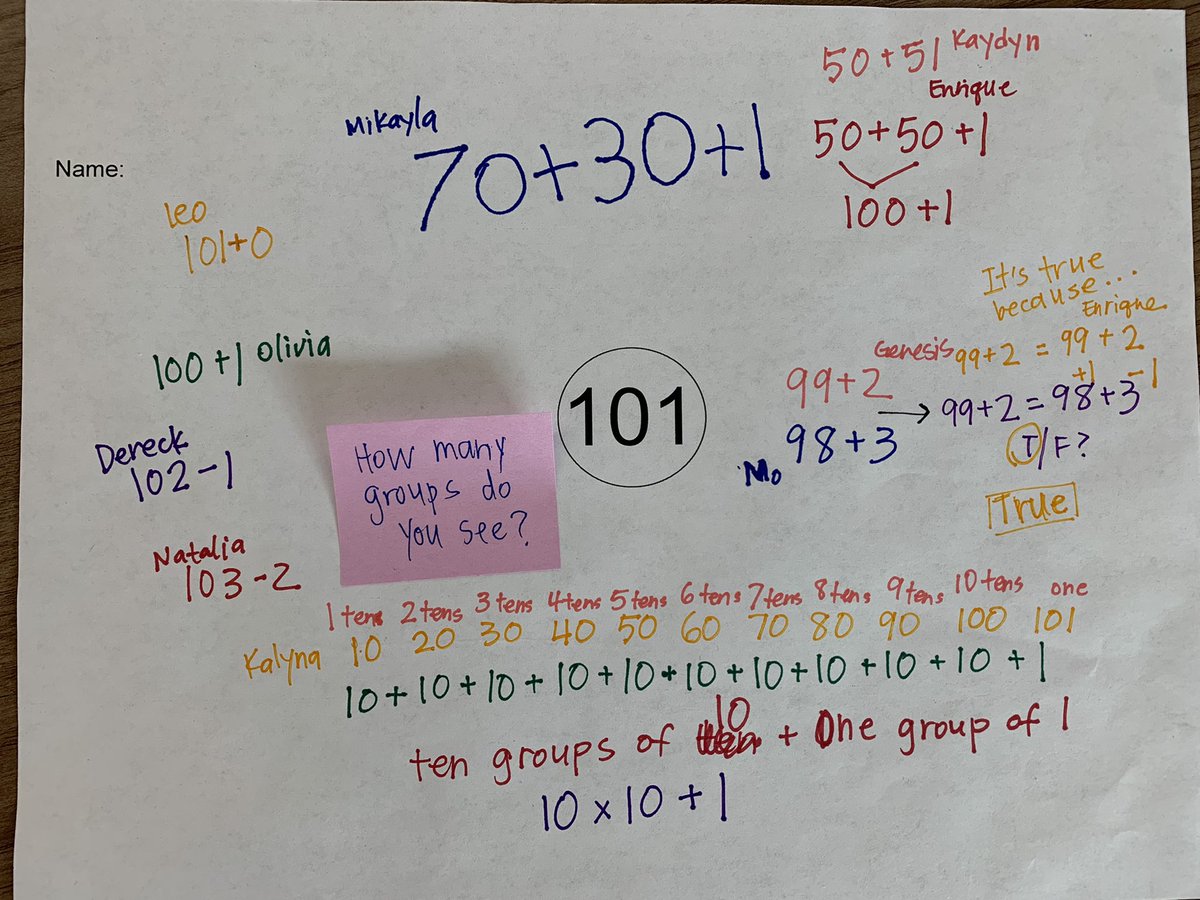 50+51 Kaydyn
Enrique
50+50+1
100+1
Mikayla
70+30+1
Name:
Leo
101+0
100+1 Olivia
Dereck
102-1
Natalia
103-2
How many
groups do
you see?
101
It's true
because...
Enrique
Genesis 99+2 = 99+2
+1 -1
99+2
98+3 → 99+2=98+3
Mo
T/F?
True
1 tens 2 tens 3 tens 4 tens 5 tens 6 tens 7 tens 8 tens 9 tens 10 tens one
Kalyna 10 20 30 40 50 60 70 80 90 100 101
10+10+10+10+10+10+10+10+10+10+1
ten groups of 10 + One group of 1
10×10+1